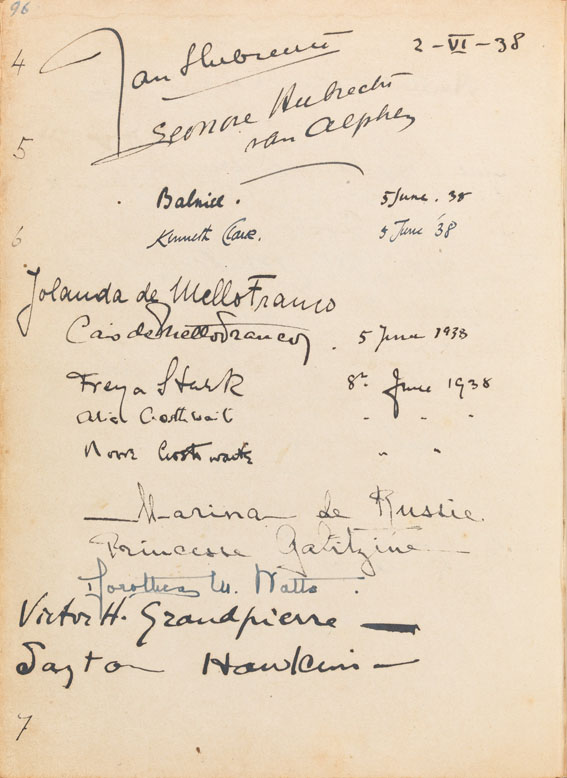 96
4 Jan Hubrecht 2-VI-38
Leonore Hubrecht
5 van Alphen
Balniel. 5 June. 38
6 Kenneth Clark. 5 June '38
Jolanda de Mello Franco
Caio de Mello Franco. 5 June 1938
Freya Stark 8th June 1938
Alice Crosthwait " " "
Crosthwaite " "
Marina de Russie
Princesse Galitzine
Dorothea M. Watts.
Victor H. Grandpierre
Hawkins
7